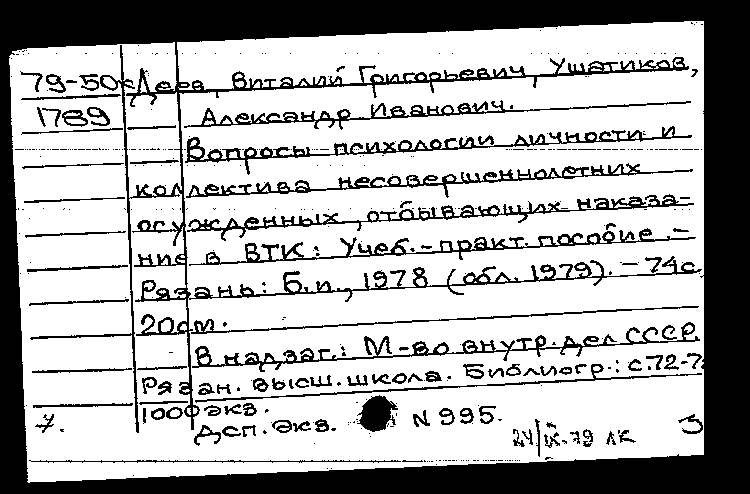 79-50к Деев, Виталий Григорьевич, Ушатиков,
1789 Александр Иванович.
Вопросы психологии личности и
коллектива несовершеннолетних
осужденных, отбывающих наказа-
ние в ВТК: Учеб.-практ. пособие.-
Рязань: Б.и., 1978 (обл. 1979). - 74с.
20см.
В надзаг.: М-во внутр. дел СССР.
Рязан. высш. школа. Библиогр.: с.72-7
1000экз.
7. Дсп. Экз. N 995.
24/IX-79 ЛК